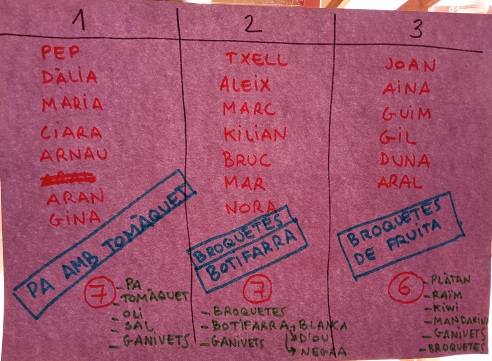 1
PEP
DÀLIA
MARIA
CIARA
ARNAU
ARAL
ARAN
GINA
PA AMB TOMÀQUET
7
- PA
TOMÀQUET
- OLI
- SAL
- GANIVETS
2
TXELL
ALEIX
MARC
KILIAN
BRUC
MAR
NORA
BROQUETES
BOTIFARRA
7
- BROQUETES
- BOTIFARRA → BLANCA
→ D'OU
→ NEGRA
- GANIVETS
3
JOAN
AINA
GUIM
GIL
DUNA
ARAL
BROQUETES
DE FRUITA
6
- PLÀTAN
- RAÏM
- KIWI
- MANDARINA
- GANIVETS
- BROQUETES